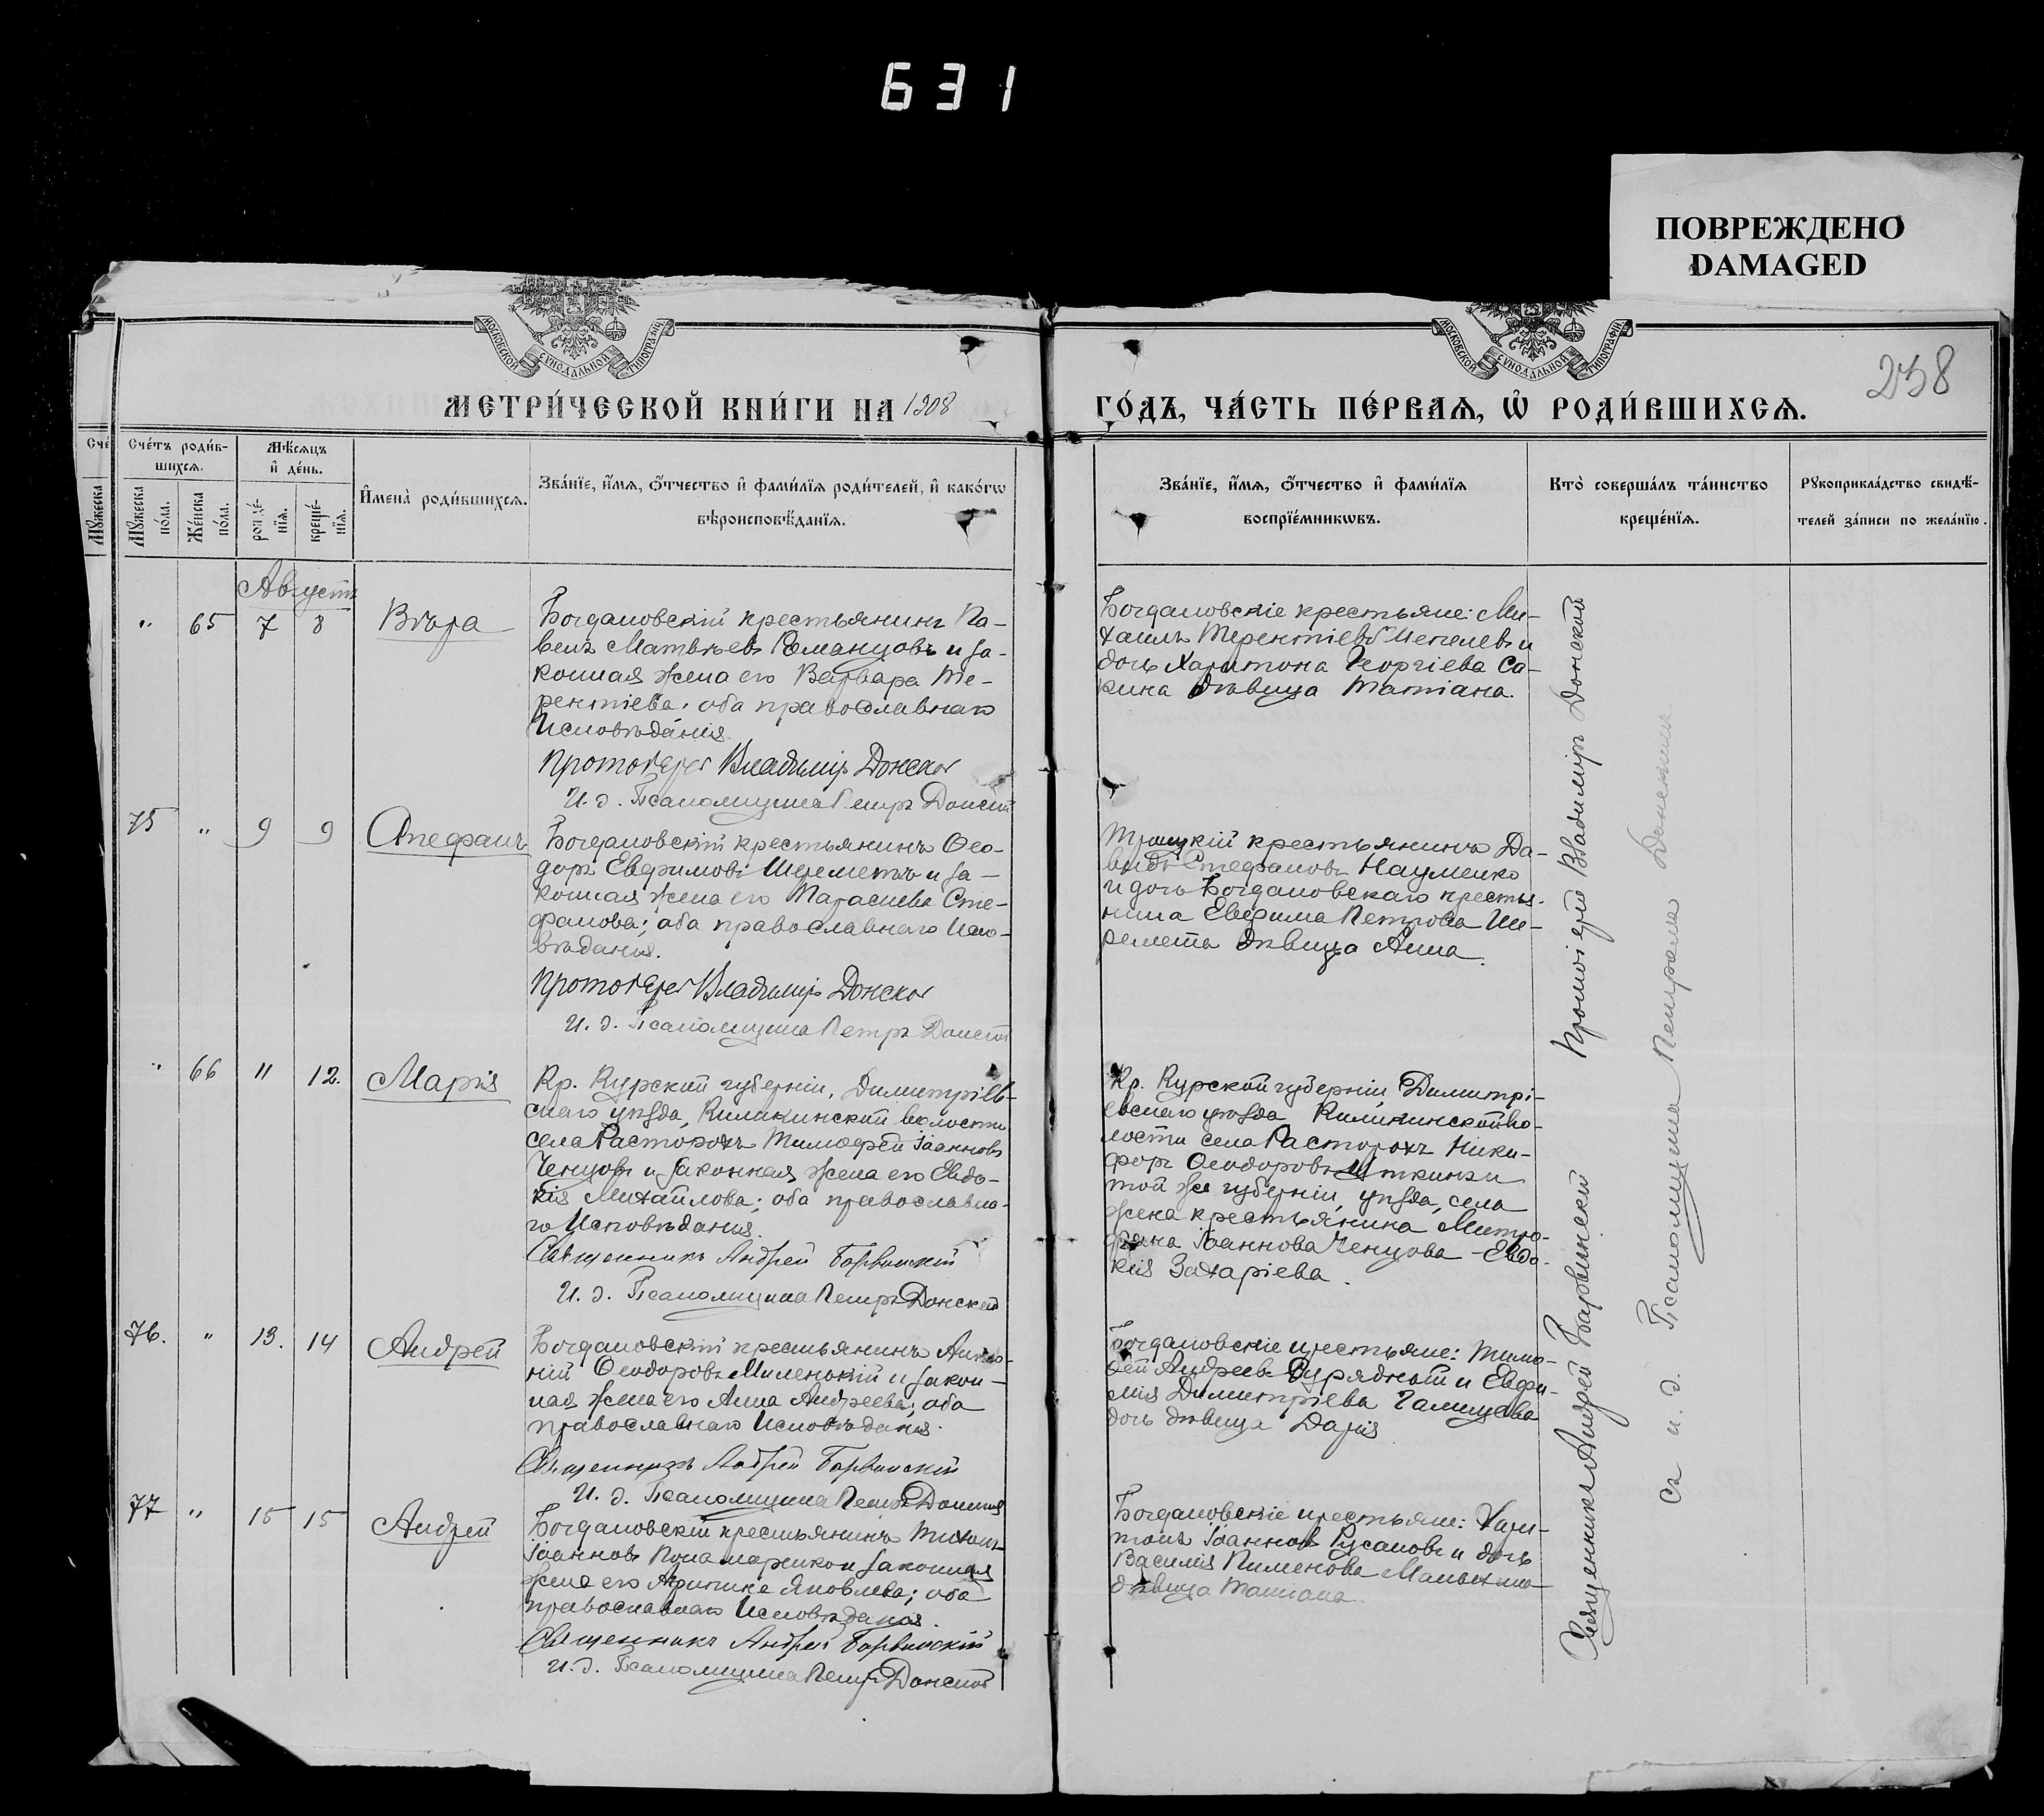 631
ПОВРЕЖДЕНО
DAMAGED
МОСКОВСКОЙ СѴНОДАЛЬНОЙ ТИПОГРАФІИ
МОСКОВСКОЙ СѴНОДАЛЬНОЙ ТИПОГРАФІИ
238
МЕТРИ́ЧЕСКОЙ КНИ́ГИ НА 1908
ГО́ДЪ, ЧА́СТЬ ПЕ́РВАЯ, Ѽ РОДИ́ВШИХСЯ.
Сче́тъ роди́в-
шихся.
Мѣ́сяцъ
и де́нь.
Имена̀ роди́вшихся.
Зва́нїе, и́мя, ѻ́тчество и фами́лїя роди́телей, и како́гѡ
вѣроисповѣ́данїя.
Мꙋ́жеска
по́ла.
Же́нска
по́ла.
рожде́-
нїя.
креще́-
нїя.
Зва́нїе, и́мя, ѻ́тчество и фами́лїя
воспрїе́мникѡвъ.
Кто̀ соверша́лъ та́инство
креще́нїя.
Рꙋкоприкла́дство свидѣ́-
телей за́писи по жела́нїю.
Августъ
" 65 7 8 Вѣра
Богдановскій крестьянинъ Па-
велъ Матвѣевъ Романцовъ и за-
конная жена его Варвара Те-
рентіева, оба православнаго
Исповѣданія.
Протоіерей Владиміръ Донской
И. д. Псаломщика Петръ Донской
Богдановскіе крестьяне: Ми-
хаилъ Терентіевъ Шепелевъ и
дочь Харитона Георгіева Са-
кина дѣвица Татіана.
75 " 9 9 Стефанъ
Богдановскій крестьянинъ Ѳео-
доръ Евфимовъ Шереметъ и за-
конная жена его Параскева Сте-
фанова; оба православнаго Испо-
вѣданія.
Протоіерей Владиміръ Донской
И. д. Псаломщика Петръ Донской
Троицкій крестьянинъ Да-
видъ Стефановъ Науменко
и дочь Богдановскаго кресть-
нина Евфима Петрова Ше-
ремета дѣвица Анна.
" 66 11 12. Марія
Кр. Курской губерніи, Димитріев-
скаго уѣзда, Киликинской волости
села Расторохъ Тимофей Іоанновъ
Ченцовъ и законная жена его Евдо-
кія Михайлова; оба православна-
го Исповѣданія.
Священникъ Андрей Барвинскій
И. д. Псаломщика Петръ Донской
Кр. Курской губерніи, Димитрі-
евскаго уѣзда Киликинской во-
лости села Расторохъ Ники-
форъ Ѳеодоровъ Уткинъ и
той же губерніи, уѣзда, села
жена крестьянина Митро-
фана Іоаннова Ченцова - Евдо-
кія Захаріева.
76. " 13. 14 Андрей
Богдановскій крестьянинъ Анто-
ній Ѳеодоровъ Миленькій и закон-
ная жена его Анна Андреева; оба
православнаго Исповѣданія.
Священникъ Андрей Барвинскій
И. д. Псаломщика Петръ Донской
Богдановскіе крестьяне: Тимо-
фей Андреевъ Бурядный и Евфи-
мія Димитріева Галицева
дочь дѣвица Дарія
77 " 15 15 Андрей
Богдановскій крестьянинъ Тихонъ
Іоанновъ Понамаренко и законная
жена его Агрипина Яковлева; оба
православнаго Исповѣданія.
Священникъ Андрей Барвинскій
И. д. Псаломщика Петръ Донской
Богдановскіе крестьяне: Хари-
тонъ Іоанновъ Русановъ и дочь
Василія Пименова
дѣвица Татіана.
Протоіерей Владиміръ Донской
Священникъ Андрей Барвинскій
Съ и. д. Псаломщика Петромъ Донскимъ